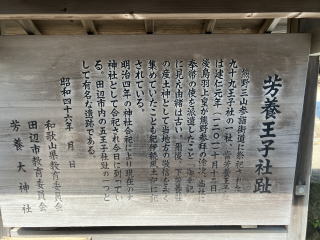 芳養王子社趾
熊野三山参詣街道に祭祀された
九十九王子社の一社、芳養王子
は建仁元年(一二〇一)十月十三日
後鳥羽上皇が熊野参拝の
奉幣の使を派遣したこと
に見え由緒は古い。爾後、下芳養
の産土神として当地方の崇信を
集めていたことも紀伊続風土記に記
されている。
明治四年の神社合祀により現在の大
神社として合祀され今日に到ってい
る。田辺市内の五王子社趾の一つと
して有名な遺跡である。
昭和四十六年 月 日
和歌山県教育委員会
田辺市教育委員会
芳養大神社